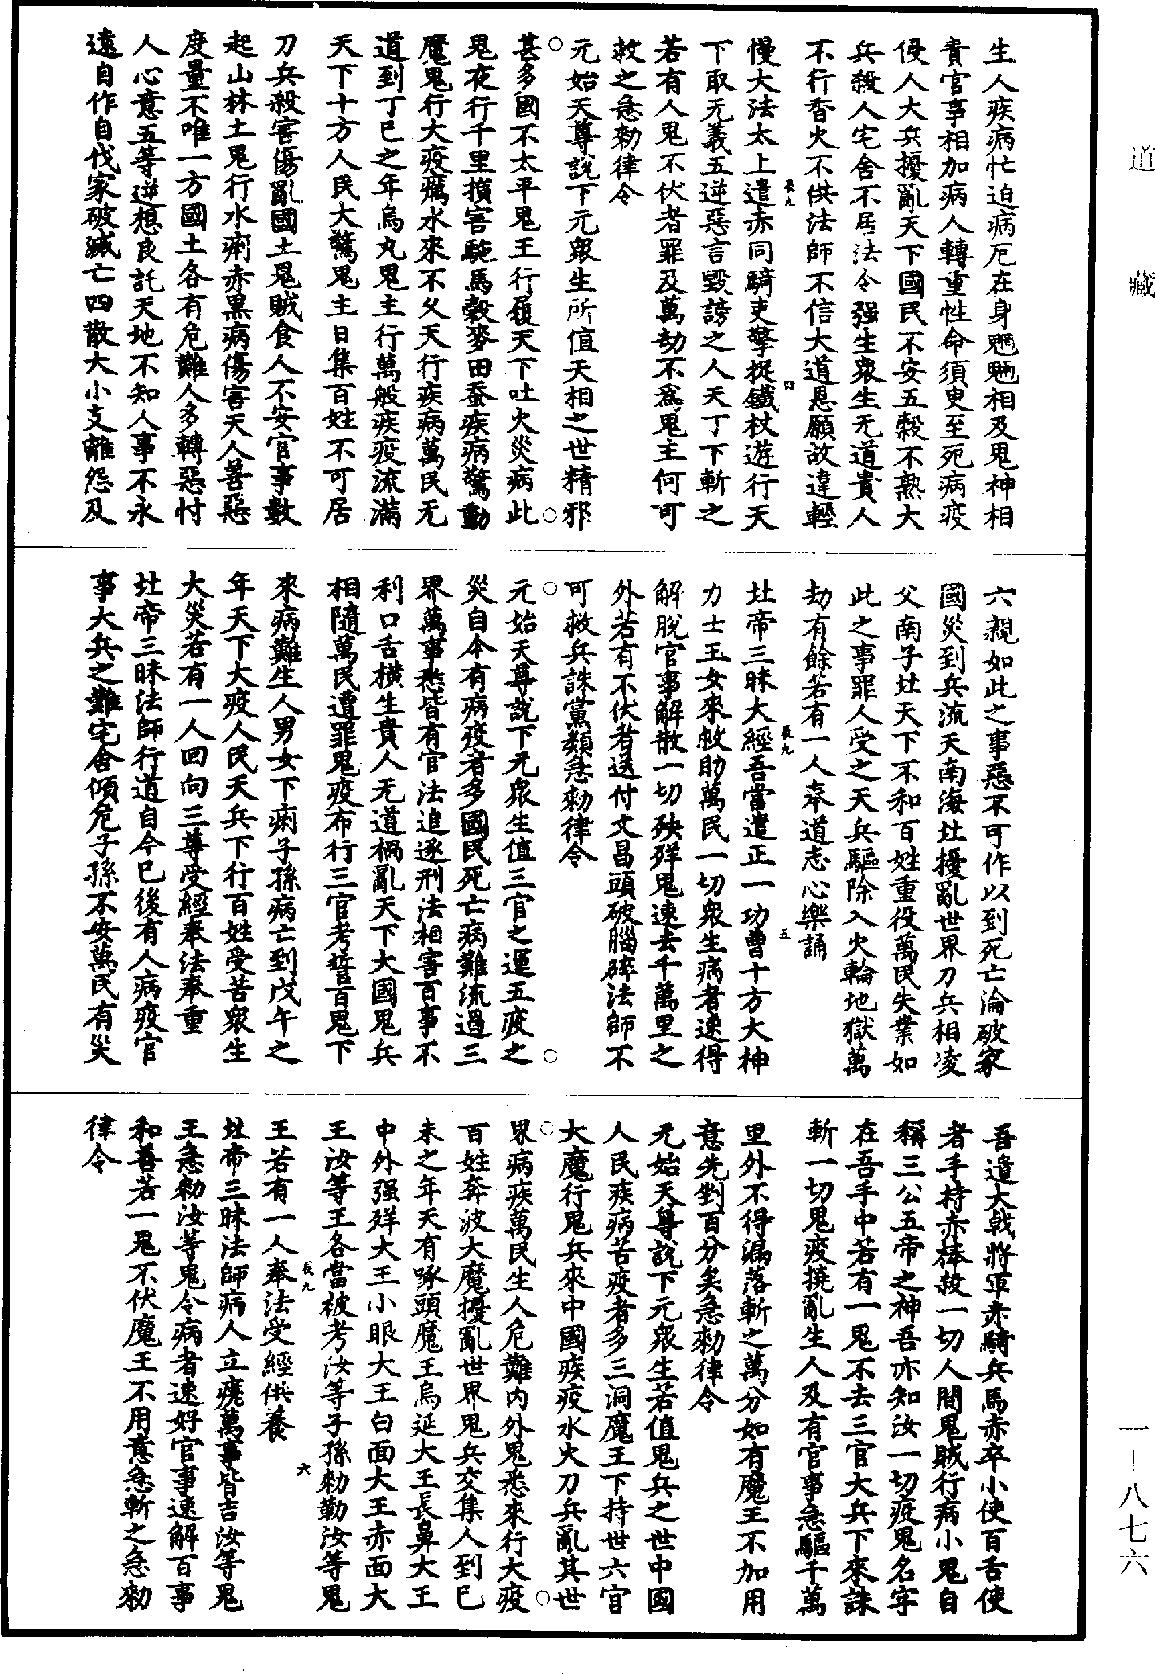 道藏
生人疾病忙迫病厄在身魍魎相及鬼神相
責官事相加病人轉重性命須臾至死病疫
侵人大兵擾亂天下國民不安五穀不熟大
兵殺人宅舍不居法令强生衆生无道貴人
不行香火不供法師不信大道恩願故違輕
慢大法太上遣赤同騎吏擎捉鐵杖遊行天
下取无義五逆惡言毀謗之人天丁下斬之
若有人鬼不伏者罪及萬劫不爲鬼主何可
救之急勑律令
元始天尊說下元衆生所值天相之世精邪
甚多國不太平鬼王行履天下吐火災病此
鬼夜行千里損害駝馬穀麥田蚕疾病驚動
魔鬼行大疫癘水來不久天行疾病萬民无
道到丁巳之年烏丸鬼主行萬般疾疫流滿
天下十方人民大驚鬼主日集百姓不可居
刀兵殺害傷亂國土鬼賊食人不安官事數
起山林土鬼行水痢赤黑病傷害天人善惡
度量不唯一方國土各有危難人多轉惡忖
人心意五等逆想良託天地不知人事不永
遠自作自伐家破滅亡四散大小支離怨及
六親如此之事惡不可作以到死亡淪破家
國災到兵流天南海壮擾亂世界刀兵相凌
父南子壮天下不和百姓重役萬民失業如
此之事罪人受之天兵驅除入火輪地獄萬
劫有餘若有一人奉道志心樂誦
壮帝三昧大經吾當遣正一功曹十方大神
力士玉女來救助萬民一切衆生病者速得
解脫官事解散一切殃殍鬼速去千萬里之
外若有不伏者送付文昌頭破腦碎法師不
可救兵誅黨類急勑律令
元始天尊說下元衆生值三官之運五疫之
災自今有病疫者多國民死亡病難流過三
界萬事悉皆有官法追逐刑法相害百事不
利口舌橫生貴人无道禍亂天下大國鬼兵
相隨萬民遭罪鬼疫布行三官考䇿百鬼下
來病難生人男女下痢子孫病亡到戊午之
年天下大疫人民天兵下行百姓受苦衆生
大災若有一人回向三尊受經奉法奉重
壮帝三昧法師行道自今已後有人病疫官
事大兵之難宅舍傾危子孫不安萬民有災
吾遣大戟將軍赤騎兵馬赤卒小使百舌使
者手持赤棒救一切人間鬼賊行病小鬼自
稱三公五帝之神吾亦知汝一切疫鬼名字
在吾手中若有一鬼不去三官大兵下來誅
斬一切鬼疫撓亂生人及有官事急驅千萬
里外不得漏落斬之萬分如有魔王不加用
意先剉百分矣急勑律令
元始天尊說下元衆生若值鬼兵之世中國
人民疾病苦疫者多三洞魔王下持世六官
大魔行鬼兵來中國疾疫水火刀兵亂其世
界病疾萬民生人危難内外鬼悉來行大疫
百姓奔波大魔擾亂世界鬼兵交集人到巳
未之年天有啄頭魔王烏延大王長鼻大王
中外强殍大王小眼大王白面大王赤面大
王汝等王各當被考汝等子孫勑勒汝等鬼
王若有一人奉法受經供養
壮帝三昧法師病人立㾏萬事皆吉汝等鬼
王急勑汝等鬼令病者速好官事速解百事
和善若一鬼不伏魔王不用意急斬之急勑
律令
一—八七六